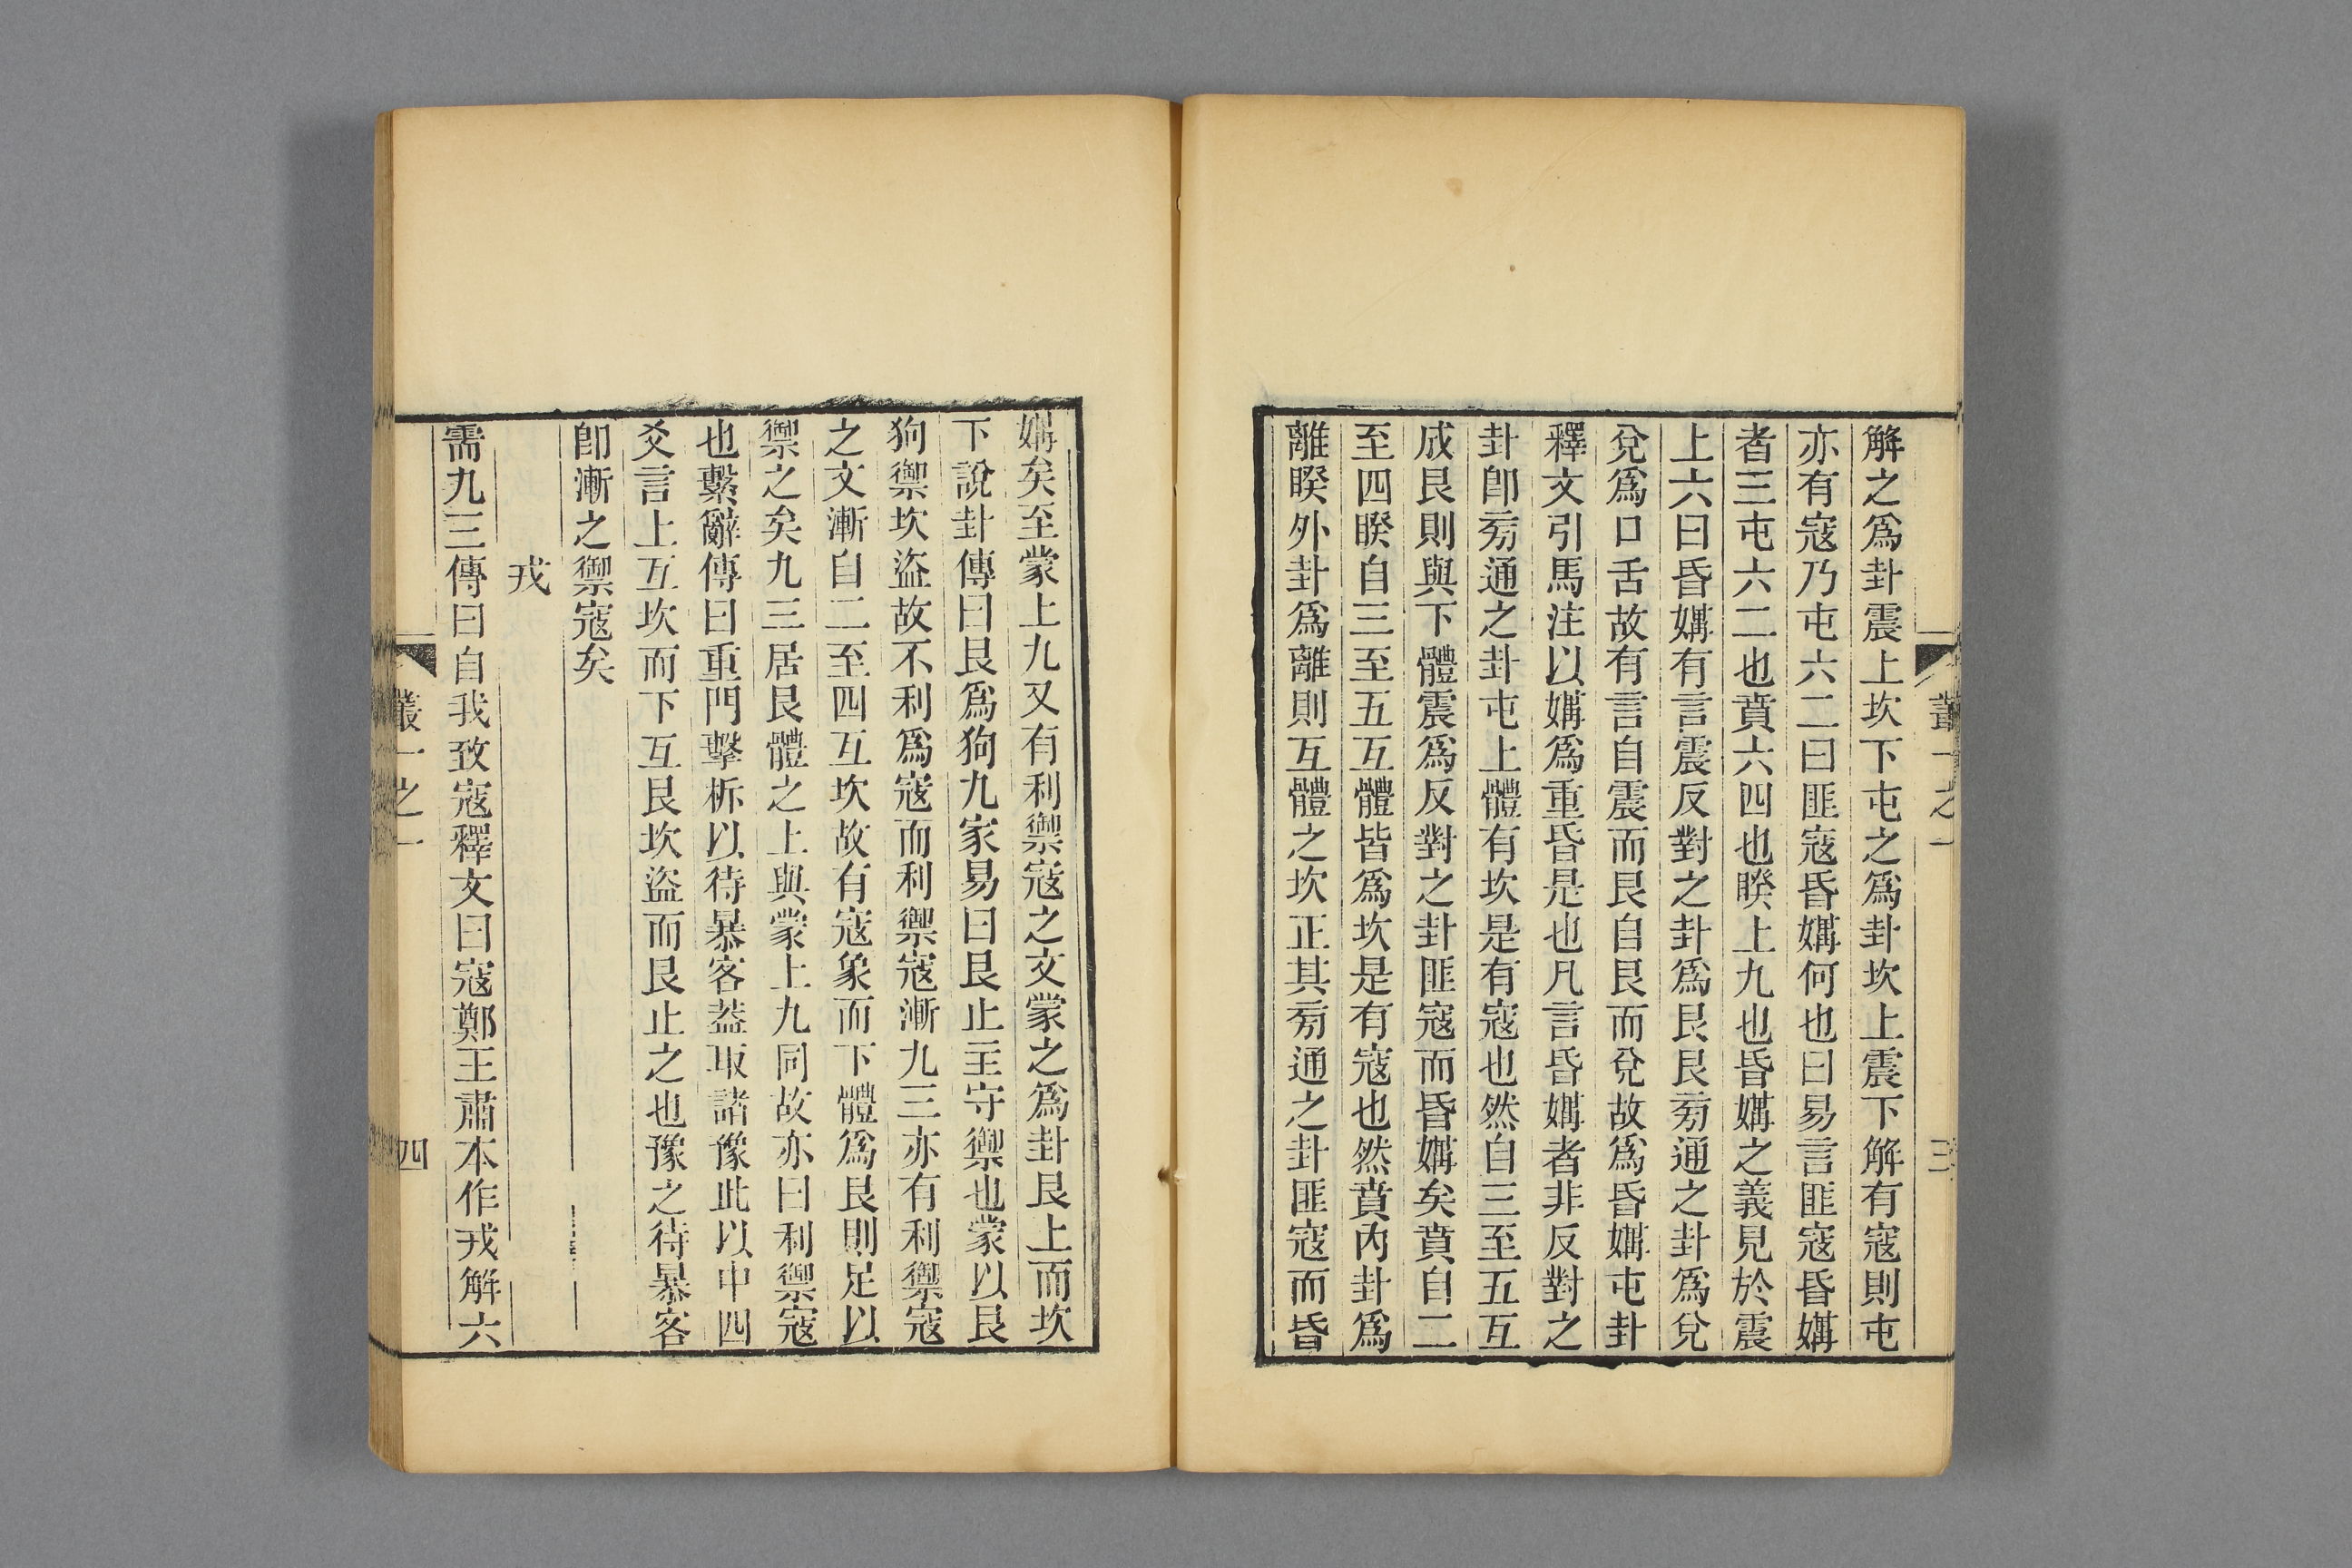 叢一之一
三
解之爲卦震上坎下屯之爲卦坎上震下解有寇則屯
亦有寇乃屯六二曰匪寇昏媾何也曰易言匪寇昏媾
者三屯六二也賁六四也睽上九也昏媾之義見於震
上六曰昏媾有言震反對之卦爲艮艮旁通之卦爲兌
兌爲口舌故有言自震而艮自艮而兌故爲昏媾屯卦
釋文引馬注以媾爲重昏是也凡言昏媾者非反對之
卦卽旁通之卦屯上體有坎是有寇也然自三至五互
成艮則與下體震爲反對之卦匪寇而昏媾矣賁自二
至四睽自三至五互體皆爲坎是有寇也然賁內卦爲
離睽外卦爲離則互體之坎正其旁通之卦匪寇而昏
媾矣至蒙上九又有利禦寇之文蒙之爲卦艮上而坎
下說卦傳曰艮爲狗九家易曰艮止主守禦也蒙以艮
狗禦坎盜故不利爲寇而利禦寇漸九三亦有利禦寇
之文漸自二至四互坎故有寇象而下體爲艮則足以
禦之矣九三居艮體之上與蒙上九同故亦曰利禦寇
也繫辭傳曰重門擊柝以待暴客葢取諸豫此以中四
爻言上互坎而下互艮坎盜而艮止之也豫之待暴客
卽漸之禦寇矣
戎
需九三傳曰自我致寇釋文曰寇鄭王肅本作戎解六
叢一之一
四